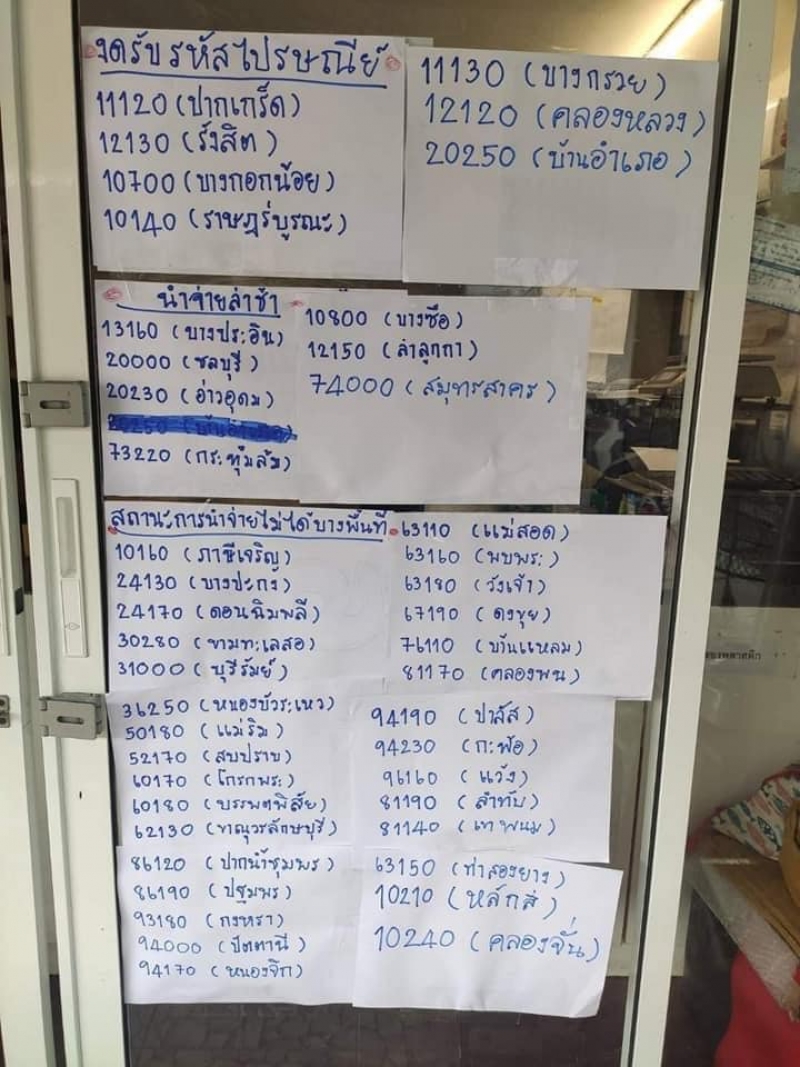 งดรับรหัสไปรษณีย์
11120 (ปากเกร็ด)
12130 (รังสิต)
10700 (บางกอกน้อย)
10140 (ราษฎร์บูรณะ)
11130 (บางกรวย)
12120 (คลองหลวง)
20250 (บ้านอำเภอ)
นำจ่ายล่าช้า
13160 (บางปะอิน)
20000 (ชลบุรี)
20230 (อ่าวอุดม)
73220 (กระทุ่มล้ม)
10800 (บางซื่อ)
12150 (ลำลูกกา)
74000 (สมุทรสาคร)
สถานะการนำจ่ายไม่ได้บางพื้นที่
10160 (ภาษีเจริญ)
24130 (บางปะกง)
24170 (ดอนฉิมพลี)
30280 (ขามทะเลสอ)
31000 (บุรีรัมย์)
63110 (แม่สอด)
63160 (พบพระ)
63180 (วังเจ้า)
67190 (ดงขุย)
76110 (บ้านแหลม)
81170 (คลองพน)
36250 (หนองบัวระเหว)
50180 (แม่ริม)
52170 (สบปราบ)
60170 (โกรกพระ)
60180 (บรรพตพิสัย)
62130 (ขาณุวรลักษบุรี)
94190 (ปาลัส)
94230 (กะพ้อ)
96160 (แว้ง)
81190 (ลำทับ)
81140 (เขาพนม)
86120 (ปากน้ำชุมพร)
86190 (ปฐมพร)
93180 (กงหรา)
94000 (ปัตตานี)
94170 (หนองจิก)
63150 (ท่าสองยาง)
10210 (หลักสี่)
10240 (คลองจั่น)